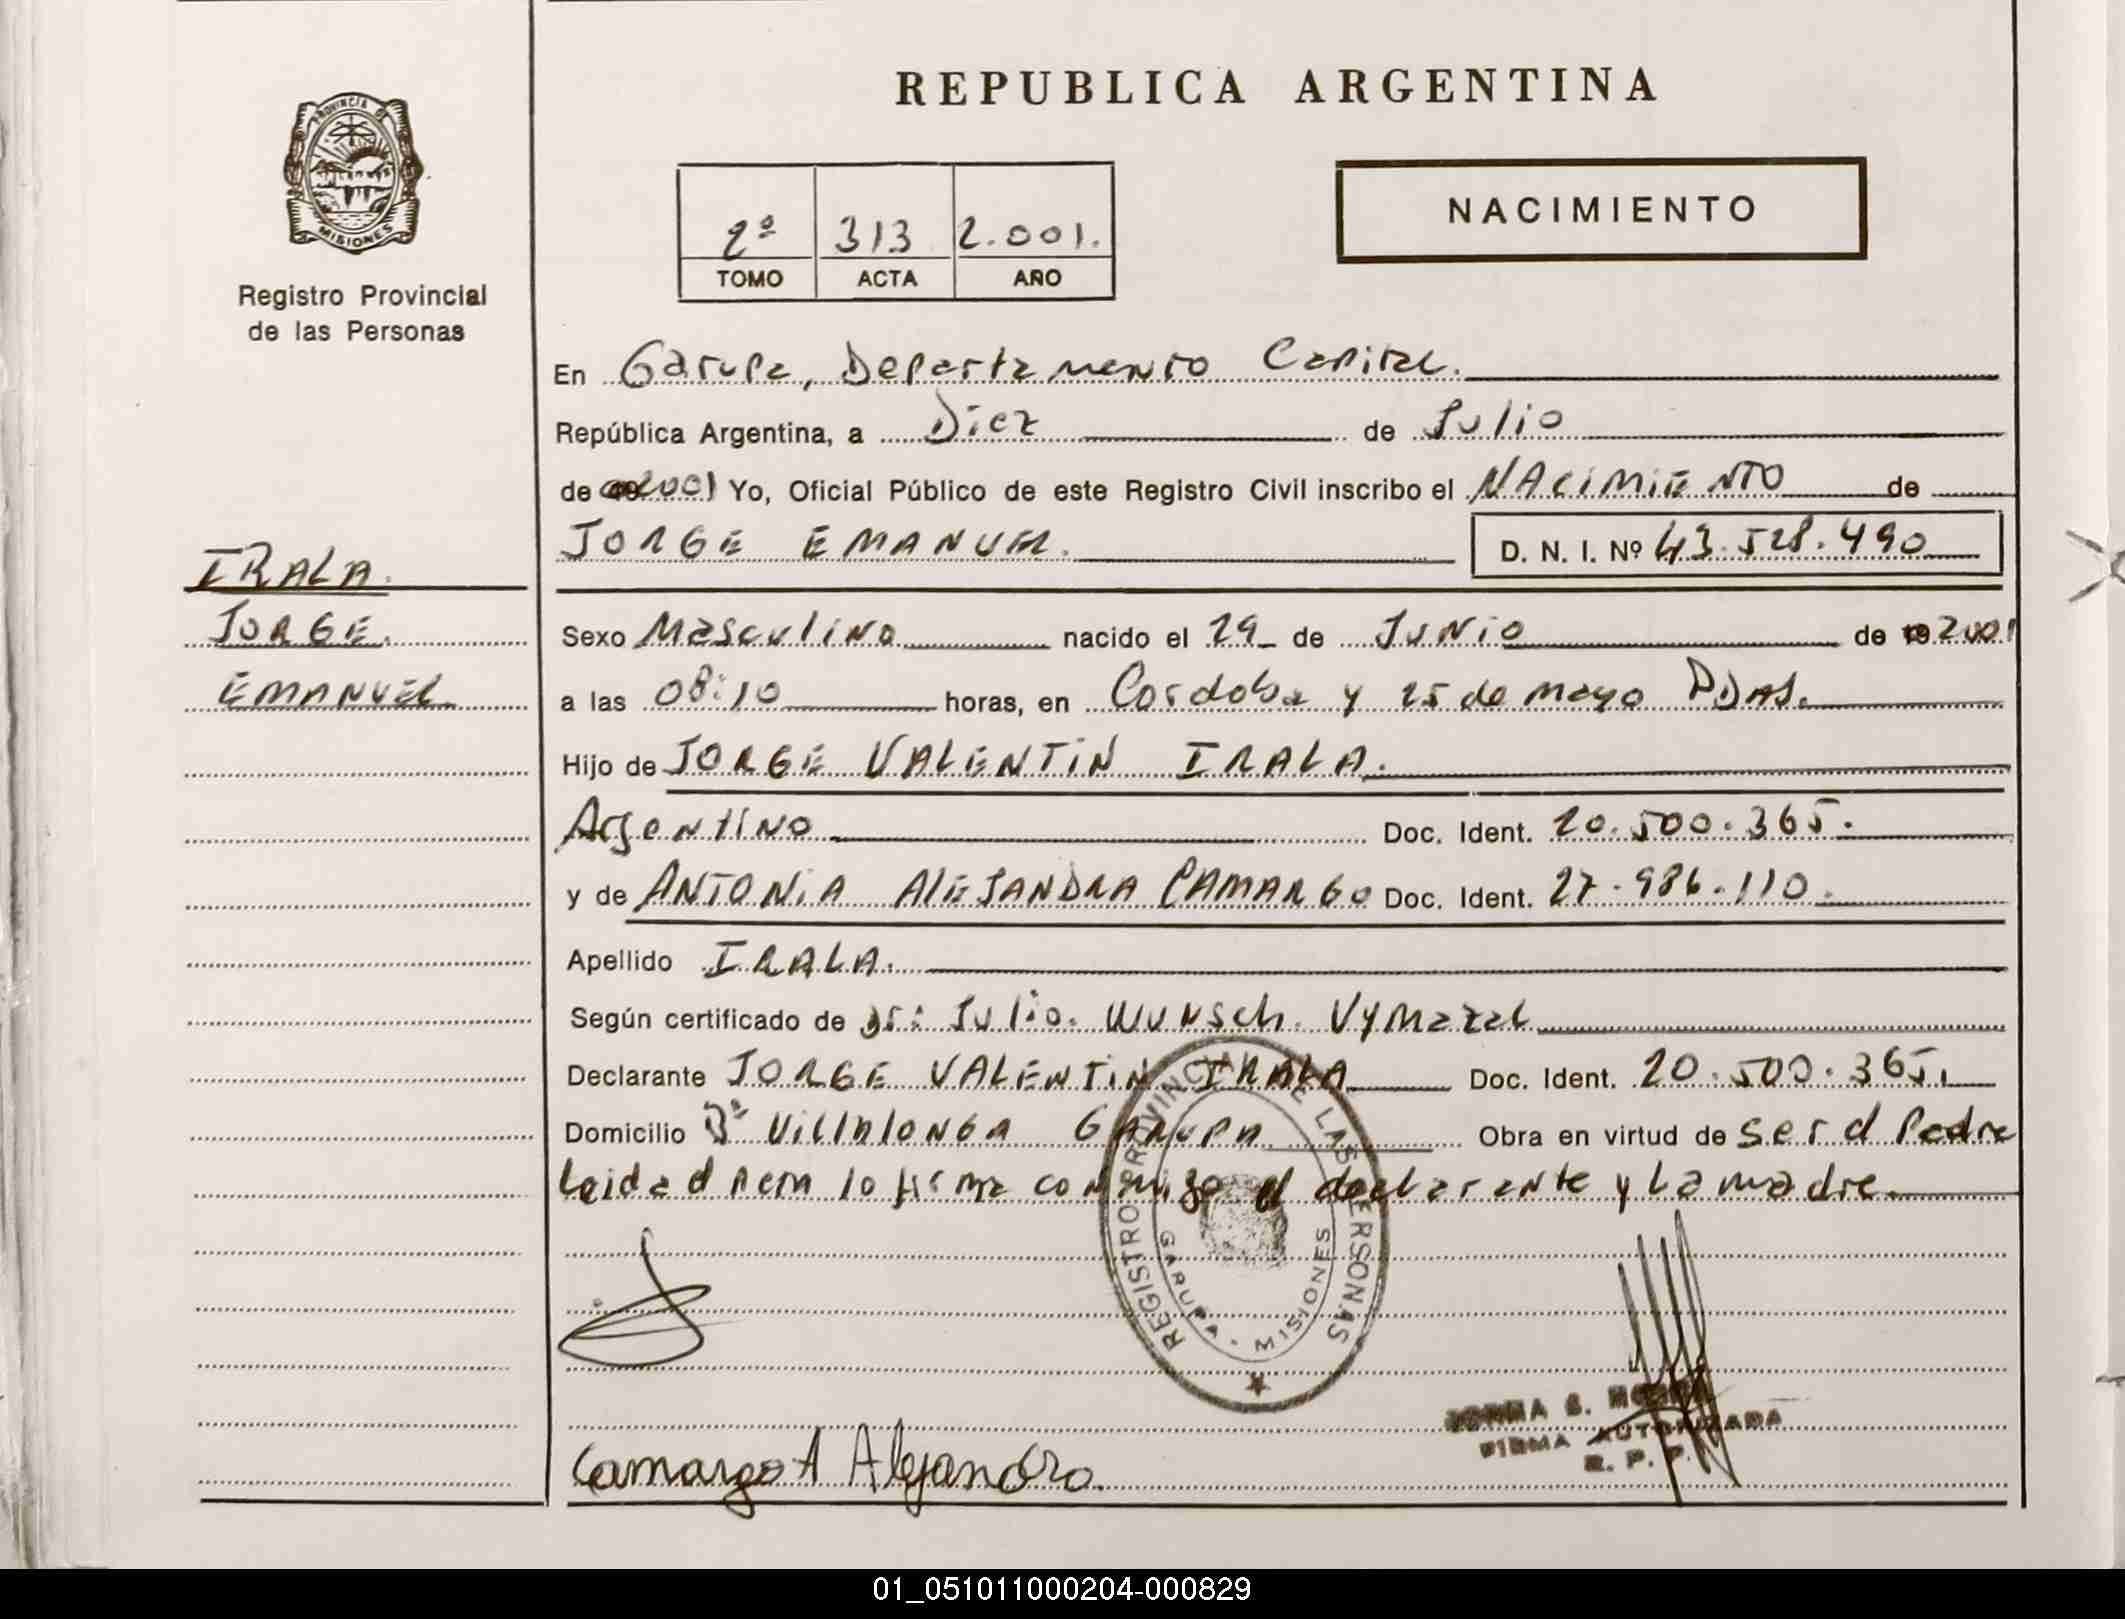 PROVINCIA DE
MISIONES
Registro Provincial
de las Personas
REPUBLICA ARGENTINA
2º 313 2.001.
TOMO ACTA AÑO
NACIMIENTO
En Garupa, Departamento Capital.
República Argentina, a Diez de Julio
de 2001 Yo, Oficial Público de este Registro Civil inscribo el NACIMIENTO de
JORGE EMANUEL. D. N. I. Nº 43.528.490
IRALA.
JORGE.
EMANUEL.
Sexo Masculino nacido el 29 de Junio de 19 2001
a las 08:10 horas, en Cordoba y 25 de mayo PDAS.
Hijo de JORGE VALENTIN IRALA.
Argentino Doc. Ident. 20.500.365.
y de ANTONIA ALEJANDRA CAMARGO Doc. Ident. 27.986.110.
Apellido IRALA.
Según certificado de Dr: Julio. Wunsch. Vymazal
Declarante JORGE VALENTIN IRALA Doc. Ident. 20.500.365.
Domicilio Bº Villalonga GARUPA Obra en virtud de ser el Padre
Leida el Acta lo firma conmigo el declarante y La madre.
REGISTRO PROVINCIAL DE LAS PERSONAS
GARUPA - MISIONES
Camargo A Alejandra.
FIRMA AUTORIZADA
R. P. P.
01_051011000204-000829